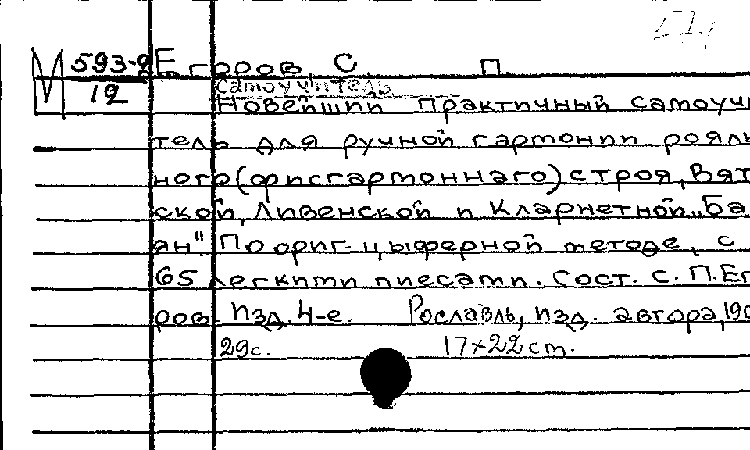 М 593-9 Егоров, С. П.
12 самоучитель
Новейший практичный самоучи
тель для ручной гармонии рояль
ного (фисгармоннаго) строя, Вят
ской, Ливенской и Кларнетной „Ба
ян" По ориг. цыферной методе, с
65 легкими пиесами. Сост. С. П. Ег
ров. Изд. 4-е. Рославль, изд. автора, 190
29 с. 17×22 cm.